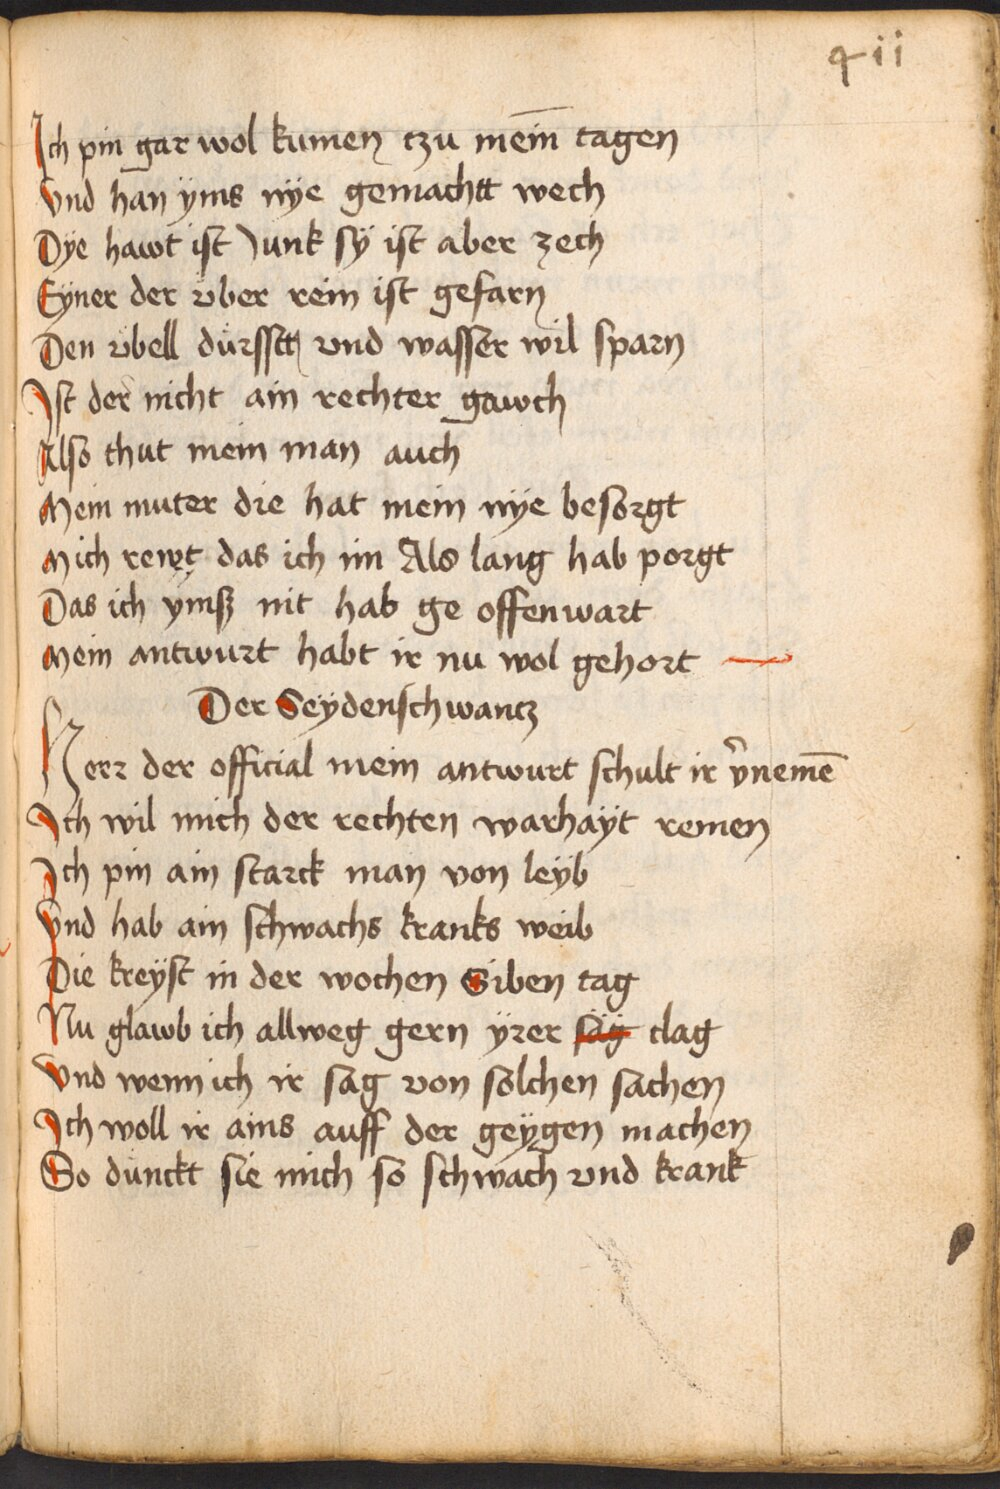 411
Ich pin gar wol kumen tzu mein̄ tagen
vnd han ÿms nÿe gemachtt wech
Dÿe hawt ist Junk sÿ ist aber zech
Eÿner der vber rein ist gefarn
Den vbell dürsstt vnd wasser wil sparn
Ist der nicht ain rechter gawch
Also thut mein man auch
Mein muter die hat mein nÿe besorgt
Mich rewt das ich im Als lang hab porgt
Das ich ÿmß nit hab ge offenwart
Mein antwurt habt ir nu wol gehort
Der Seÿdenschwantz
Herr der official mein antwurt schult ir v̄nemē
Ich wil mich der rechten warhaÿt remen
Ich pin ain starck man von leÿb
Vnd hab ain schwachs kranks weib
Die kreÿst in der wochen Siben tag
Nu glawb ich allweg gern ÿrer clag
Vnd wenn ich ir sag von solchen sachen
Ich woll ir ains auff der geÿgen machen
So dünckt sie mich so schwach vnd krank